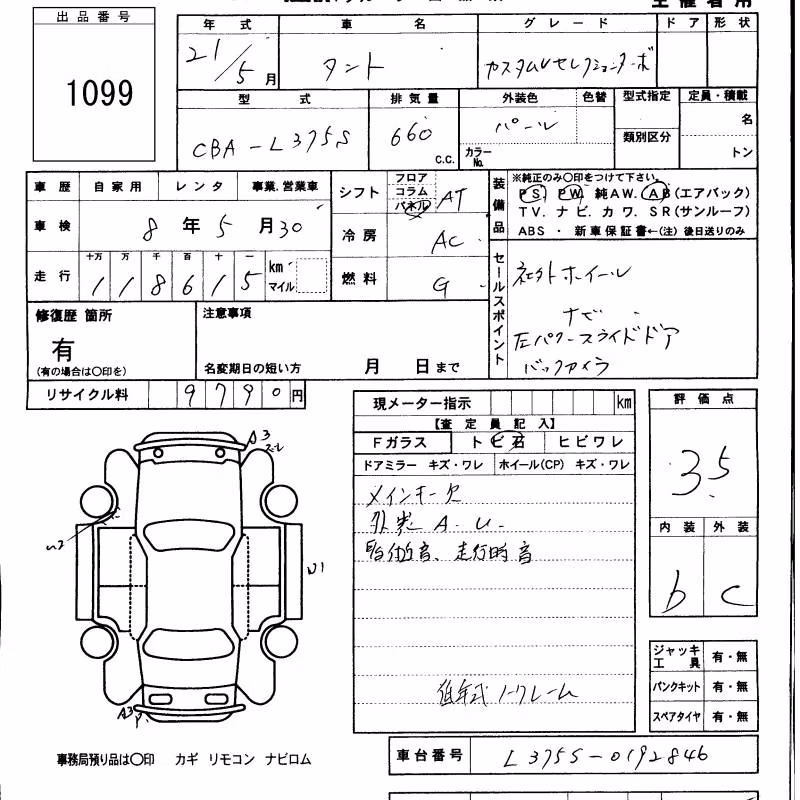 出品番号
1099
年式 車名 グレード ドア 形状
21/5月 タント カスタムVセレクションターボ
型式 排気量 外装色 色替 型式指定 定員・積載
CBA-L375S 660 c.c. パール カラーNo. 類別区分 名 トン
車歴 自家用 レンタ 事業,営業車
車検 8年5月30
走行 十万 万 千 百 十 一
118615 km マイル
シフト フロア コラム パネル AT
冷房 AC
燃料 G
装備品
※純正のみ○印をつけて下さい。
PS. PW. 純AW. AB(エアバック)
TV. ナビ. カワ. SR(サンルーフ)
ABS ・ 新車保証書←(注) 後日送りのみ
セールスポイント
社外ホイール
ナビ
左パワースライドドア
バックカメラ
修復歴 箇所
有
(有の場合は○印を)
注意事項
名変期日の短い方 月 日まで
リサイクル料 9790円
現メーター指示 km
【査定員記入】
Fガラス トビ石 ヒビワレ
ドアミラー キズ・ワレ ホイール(CP) キズ・ワレ
メインキー欠
外装 A.U.
走行時音
低年式 ノークレーム
評価点
3.5
内装 外装
b c
ジャッキ 工具 有・無
パンクキット 有・無
スペアタイヤ 有・無
A3
U2
U1
A3
P.
事務局預り品は○印 カギ リモコン ナビロム
車台番号 L375S-0192846